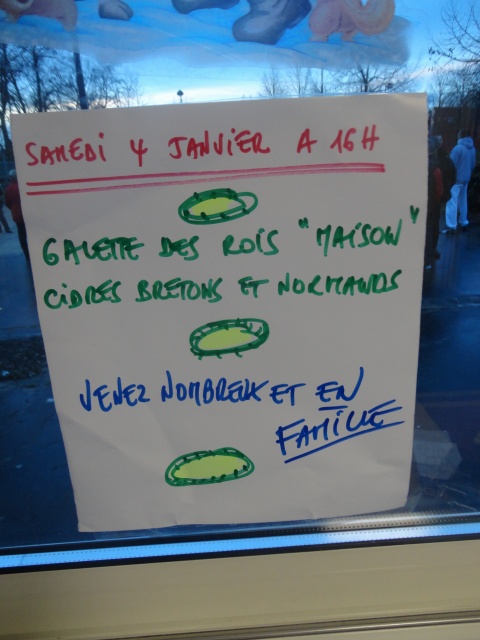 SAMEDI 4 JANVIER A 16H
GALETTE DES ROIS "MAISON"
CIDRES BRETONS ET NORMANDS
VENEZ NOMBREUX ET EN
FAMILLE